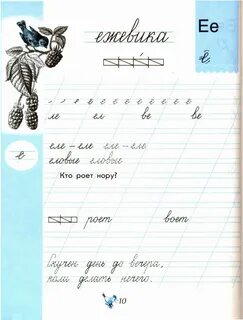 ежевика
Ее
е
е
ле ел ве ве
еле – еле еле – еле
еловые еловые
Кто роет нору?
роет воет
Скучен день до вечера,
коли делать нечего.
10